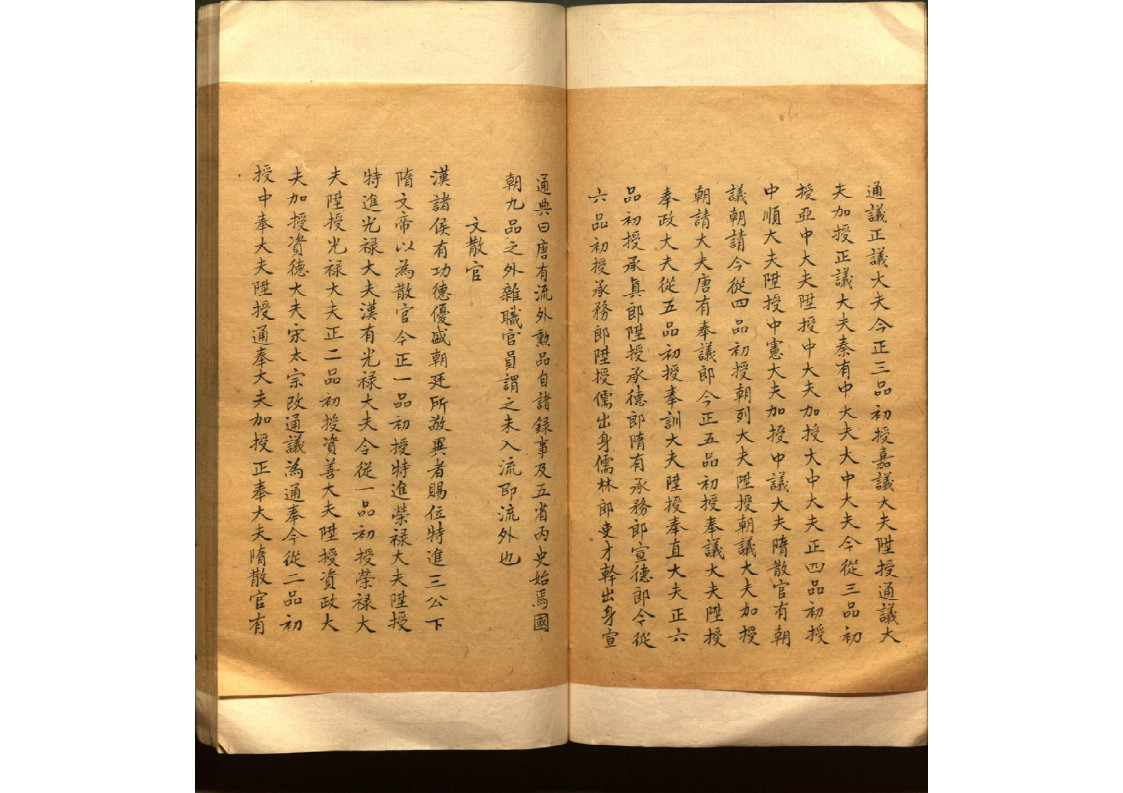 通典曰唐有流外勲品自諸録事及五省内史始焉國
朝九品之外雜職官員謂之未入流即流外也
文散官
漢諸侯有功德優盛朝廷所敬異者賜位特進三公下
隋文帝以為散官今正一品初授特進榮禄大夫陞授
特進光禄大夫漢有光禄大夫今從一品初授榮禄大
夫陞授光禄大夫正二品初授資善大夫陞授資政大
夫加授資德大夫宋太宗改通議為通奉今從二品初
授中奉大夫陞授通奉大夫加授正奉大夫隋散官有
通議正議大夫今正三品初授嘉議大夫陞授通議大
夫加授正議大夫秦有中大夫大中大夫今從三品初
授亞中大夫陞授中大夫加授大中大夫正四品初授
中順大夫陞授中憲大夫加授中議大夫隋散官有朝
議朝請今從四品初授朝列大夫陞授朝議大夫加授
朝請大夫唐有奉議郎今正五品初授奉議大夫陞授
奉政大夫從五品初授奉訓大夫陞授奉直大夫正六
品初授承眞郎陞授承德郎隋有承務郎宣德郎今從
六品初授承務郎陞授儒出身儒林郎吏才幹出身宣